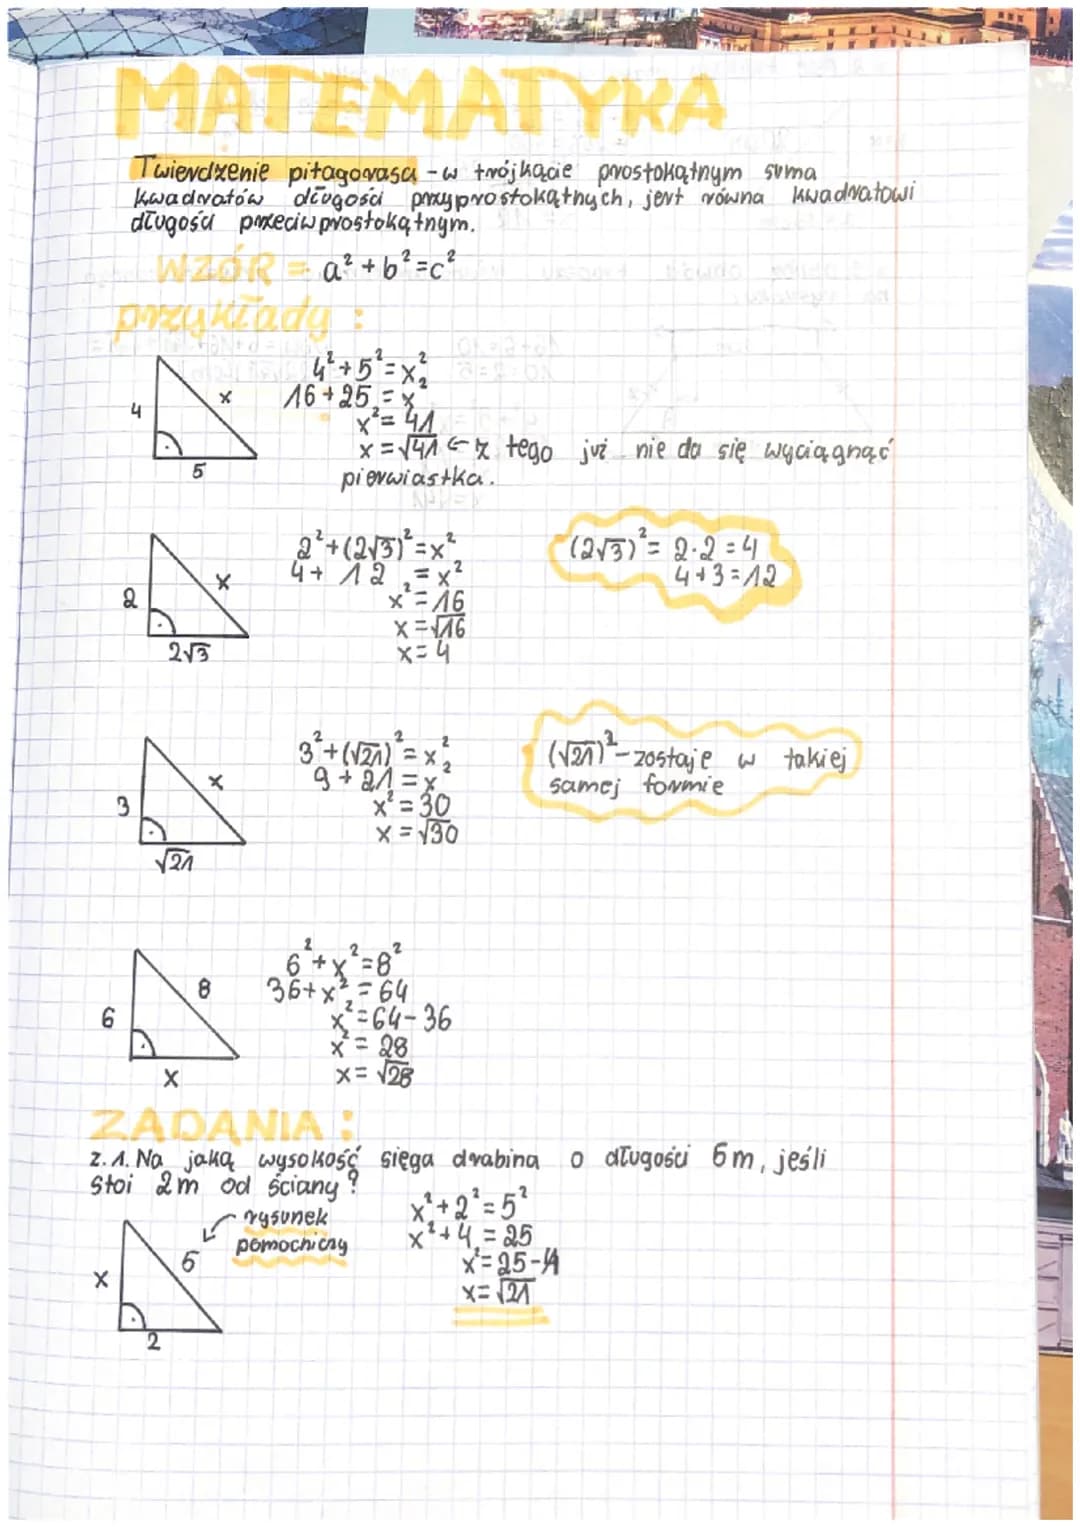 MATEMATYKA
Twierdzenie pitagorasa - w trójkącie prostokątnym suma
kwadratów długości przyprostokątnych, jest równa kwadratowi
długości przeciwprostokątnym.
WZÓR = a² + b² = c²
przykłady :
4
x
5
4² + 5² = x²
16 + 25 = x²
x² = 41
x = √41 ← z tego już nie da się wyciągnąć
pierwiastka.
2
x
2√3
2² + (2√3)² = x²
4 + 12 = x²
x² = 16
x = √16
x = 4
(2√3)² = 2·2 = 4
4+3=12
3
x
√21
3² + (√21)² = x²
9 + 21 = x²
x² = 30
x = √30
(√21)² - zostaje w takiej
samej formie
6
8
x
6² + x² = 8²
36 + x² = 64
x² = 64 - 36
x² = 28
x = √28
ZADANIA :
z.1. Na jaką wysokość sięga drabina o długości 6m, jeśli
stoi 2m od ściany?
rysunek
pomocniczy
x
6
2
x² + 2² = 5²
x² + 4 = 25
x² = 25 - 4
x = √21